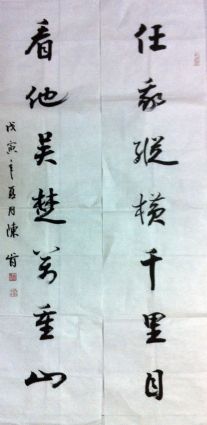 任我縱橫千里目
看他吴楚万重山
戊寅年夏月陳